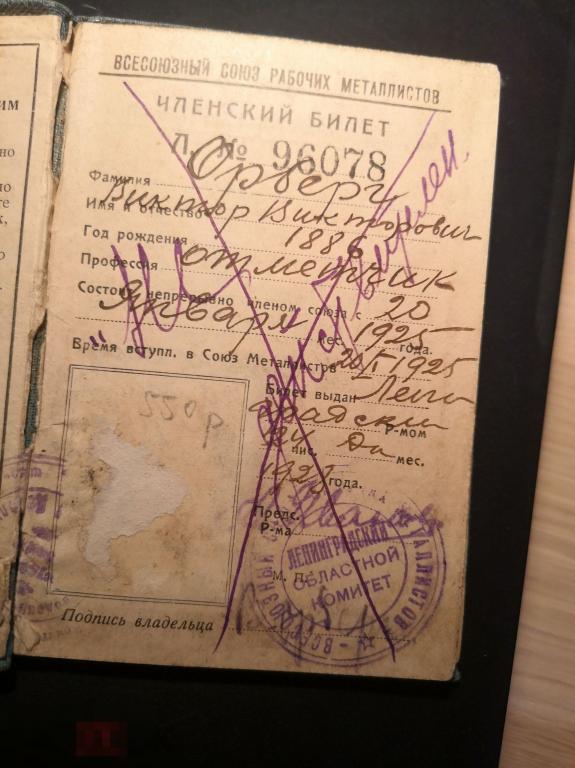 ВСЕСОЮЗНЫЙ СОЮЗ РАБОЧИХ МЕТАЛЛИСТОВ
ЧЛЕНСКИЙ БИЛЕТ
Л. № 96078
Фамилия Орверг
Имя и отчество Виктор Викторович
Год рождения 1886
Профессия отметчик
Состоит непрерывно членом союза с 20
Января мес. 1925 года.
Время вступл. в Союз Металлистов 20/I 1925
Билет выдан Ленин
градским Р-мом
чис. мес.
192 года.
Предс.
Р-ма
М. П.
ЛЕНИНГРАДСКИЙ
ОБЛАСТНОЙ
КОМИТЕТ
220 р
Подпись владельца